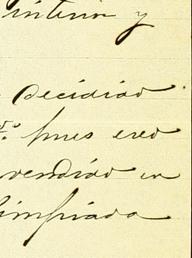 interior y
decidido
5.º pues creo
vendido en
limpiada